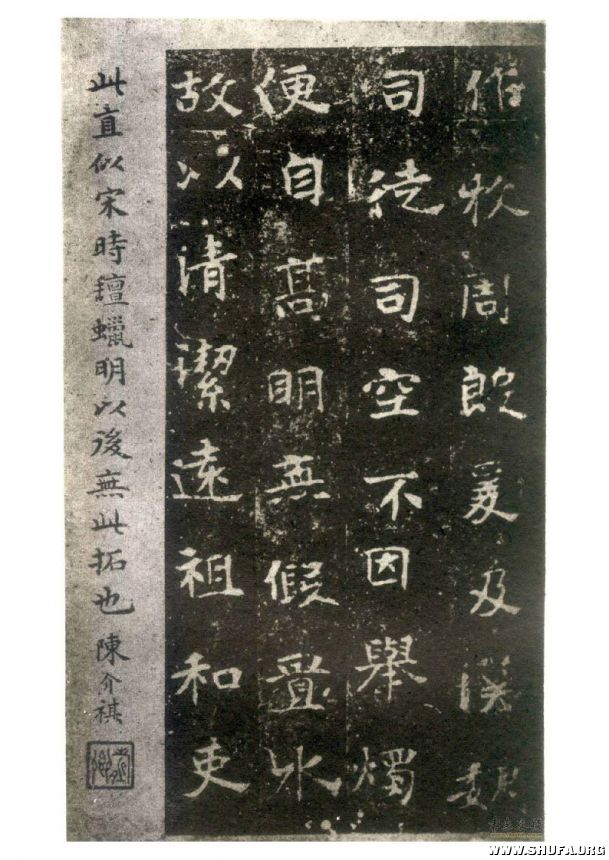 作牧周殷爰及漢魏
司徒司空不因舉燭
便自髙明無假置水
故以清潔遠祖和吏
此直似宋時氊蠟明以後無此拓也 陳介祺
WWW.SHUFA.ORG